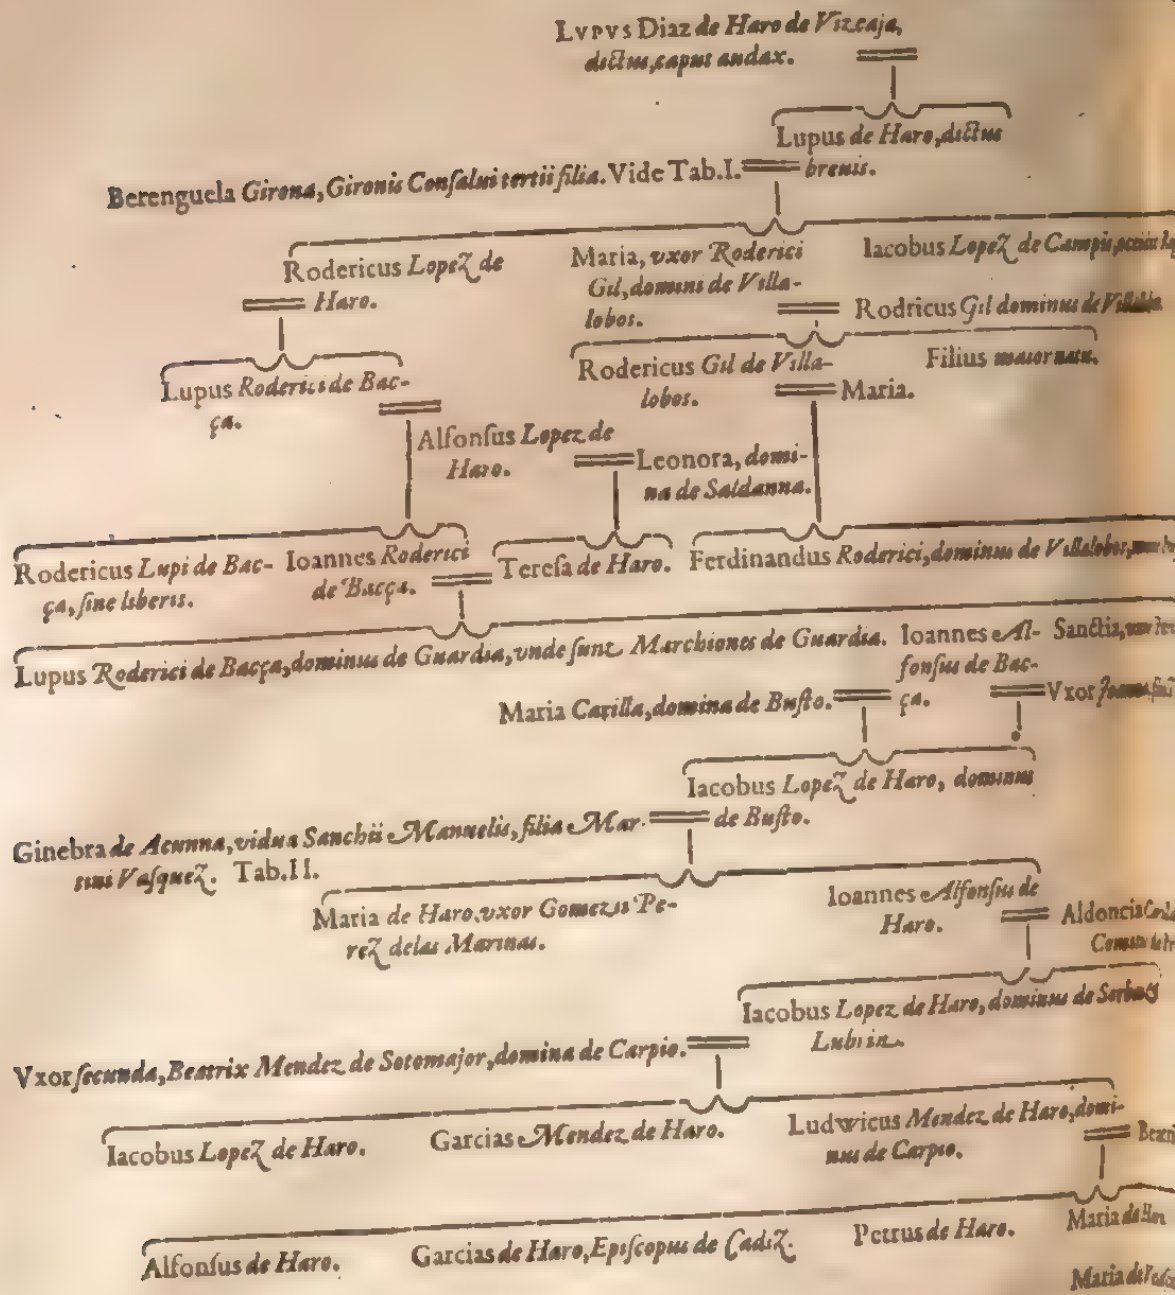 Lvpvs Diaz de Haro de Vizcaja,
dictus, caput audax.
Lupus de Haro, dictus
breuis.
Berenguela Girona, Gironis Conſalui tertii filia. Vide Tab.I.
Rodericus Lopez de
Haro.
Maria, vxor Roderici
Gil, domini de Villa-
lobos.
Iacobus Lopez de Campis,
Rodricus Gil dominus de Villalobos
Lupus Roderici de Bac-
ça.
Rodericus Gil de Villa-
lobos.
Filius maior natu.
Maria.
Alfonſus Lopez de
Haro.
Leonora, domi-
na de Saldanna.
Rodericus Lupi de Bac-
ça, ſine liberis.
Ioannes Roderici
de Bacça.
Tereſa de Haro.
Ferdinandus Roderici, dominus de Villalobos,
Lupus Roderici de Bacça, dominus de Guardia, vnde ſunt Marchiones de Guardia.
Ioannes Al-
fonſus de Bac-
ça.
Sanctia,
Maria Carilla, domina de Buſto.
Vxor
Iacobus Lopez de Haro, dominus
de Buſto.
Ginebra de Acunna, vidua Sanchii Manuelis, filia Mar-
tini Vaſquez. Tab.II.
Maria de Haro, vxor Gomezii Pe-
rez delas Marinas.
Ioannes Alfonſus de
Haro.
Aldoncia
Iacobus Lopez de Haro, dominus de Sorbas &
Lubrin.
Vxor ſecunda, Beatrix Mendez de Sotomajor, domina de Carpio.
Iacobus Lopez de Haro.
Garcias Mendez de Haro.
Ludwicus Mendez de Haro, domi-
nus de Carpio.
Alfonſus de Haro.
Garcias de Haro, Epiſcopus de Cadiz.
Petrus de Haro.
Maria de
Maria de